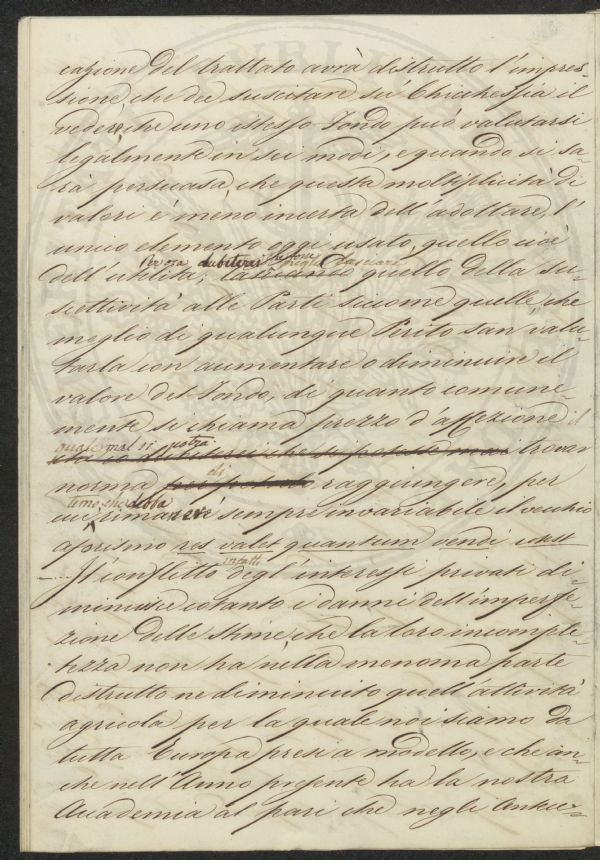 cazione del trattato avrà distrutto l'impres=
sione, che dee suscitare su Chichessia il
vedere, che uno istesso Fondo può valutarsi
legalmente in sei modi, e quando si sa=
rà persuasa, che questa moltiplicità di
valori è meno incerta dell'adottare, l'
unico elemento oggi usato, quello cioè
Per ora dubiterei
dell'utilità; lasciando quello della su=
scettività alle Parti siccome quelle, che
meglio di qualunque Perito san valu=
tarla con aumentare o diminuir il
valore del Fondo, di quanto comune=
mente si chiama prezzo d'affezione il
quale mal si potrà
trovar
di
norma raggiungere, per
temo, che debba
cui rimarrà sempre invariabile il vecchio
aforismo res valet quantum vendi
infatti
Il conflitto degl'interessi privati di=
minuisce cotanto i danni dell'imperfe=
zione delle Stime, che la loro incomple=
tezza non ha nella menoma parte
distrutto ne diminuito quell'attività
agricola per la quale noi siamo da
tutta Europa presi a modello, e che an=
che nell'Anno presente ha la nostra
Accademia al pari che negli Antece=